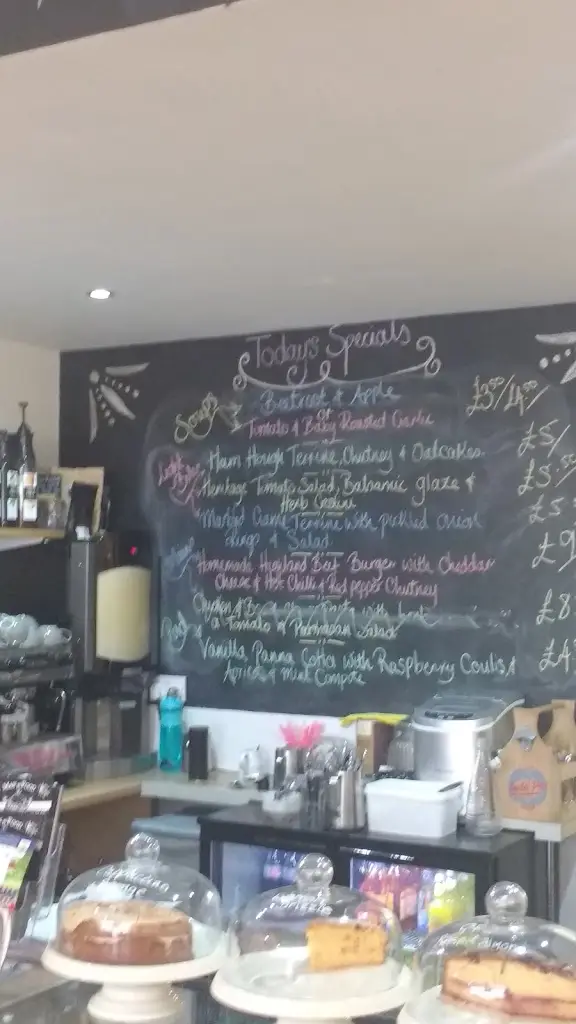 Today's Specials
Soups Beetroot & Apple £3.50/4.50
or
Tomato & Baby Roasted Garlic
Ham Hough Terrine, Chutney & Oatcakes £5/
Heritage Tomato Salad, Balsamic glaze & £5.50
Herb Crostini
Game Terrine with pickled onion £5
rings & Salad
Homemade Highland Beef Burger with Cheddar £9
Cheese & Hot Chilli & Red pepper Chutney
Chicken & Pasta with £8
a Tomato & Parmesan Salad
Vanilla Panna Cotta with Raspberry Coulis & £4
Apricot & Mint Compote